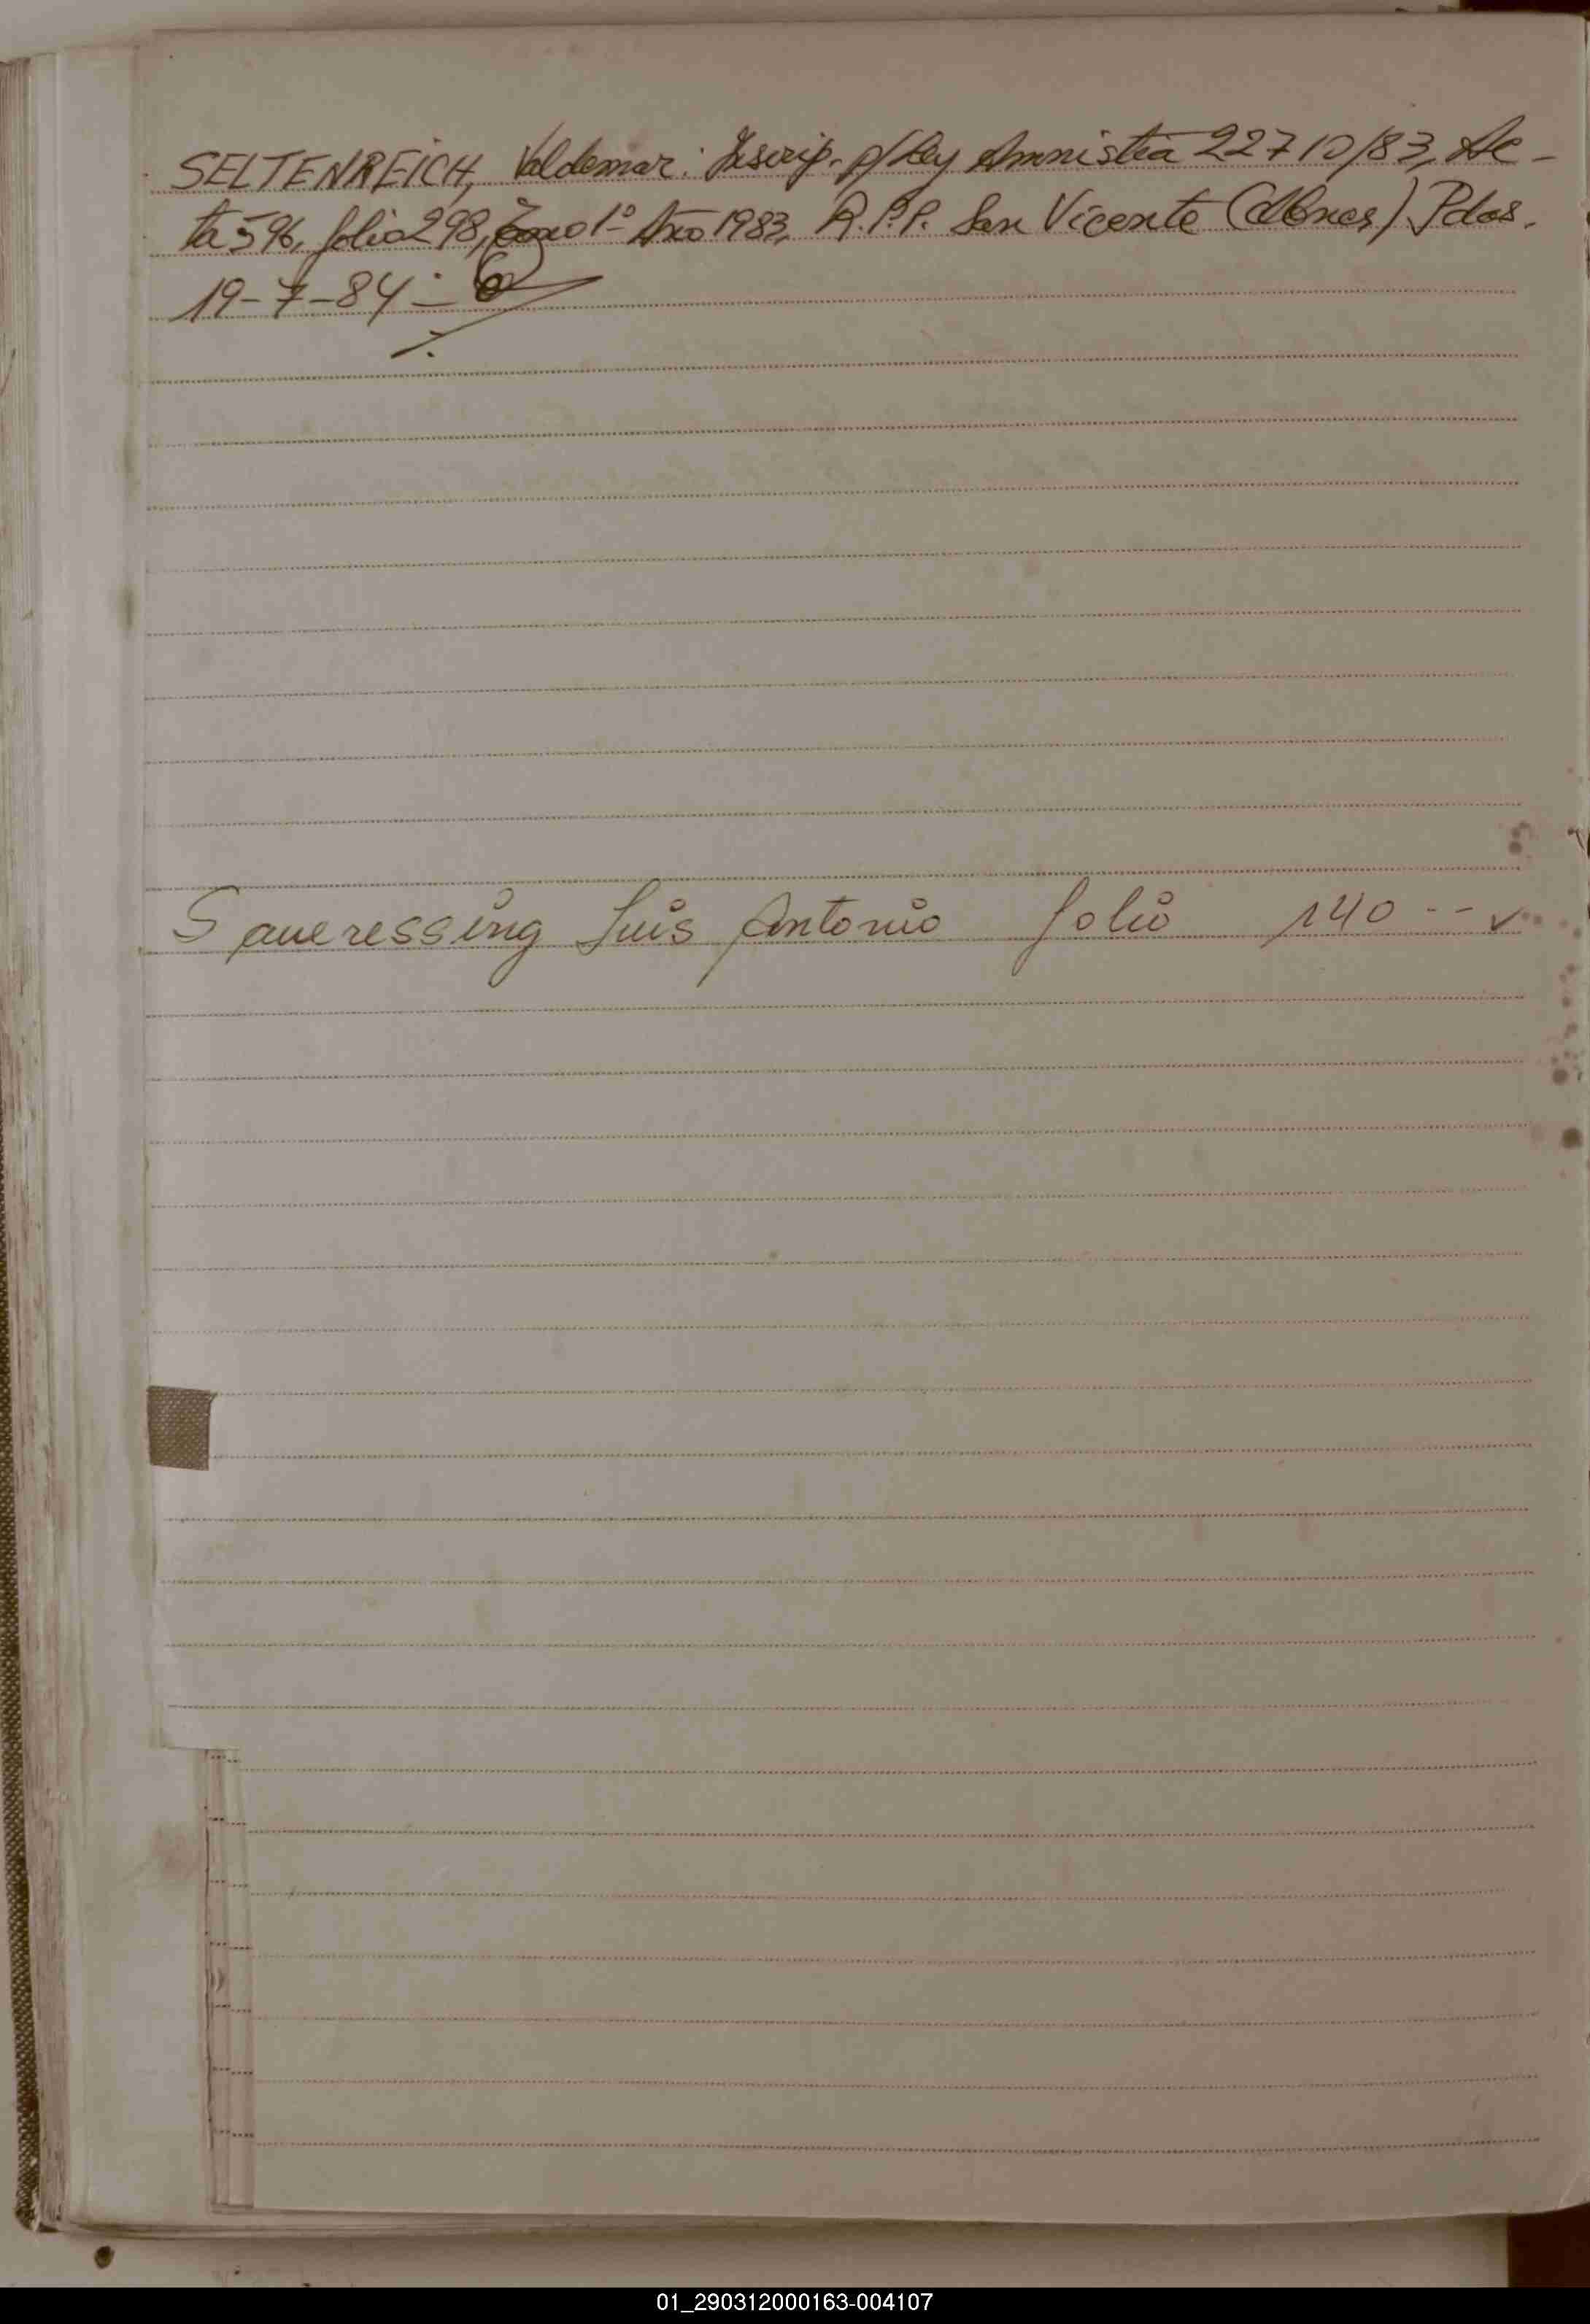 SELTENREICH, Valdemar: Inscrip. p/Ley Amnistia 22710/83, Ac-
ta 596, folio 298, Tomo 1º Año 1983, R.P.P. San Vicente (Mnes) Pdas.
19-7-84 -
Saueressing Luis Antonio folio 140 -- ✓
01_290312000163-004107